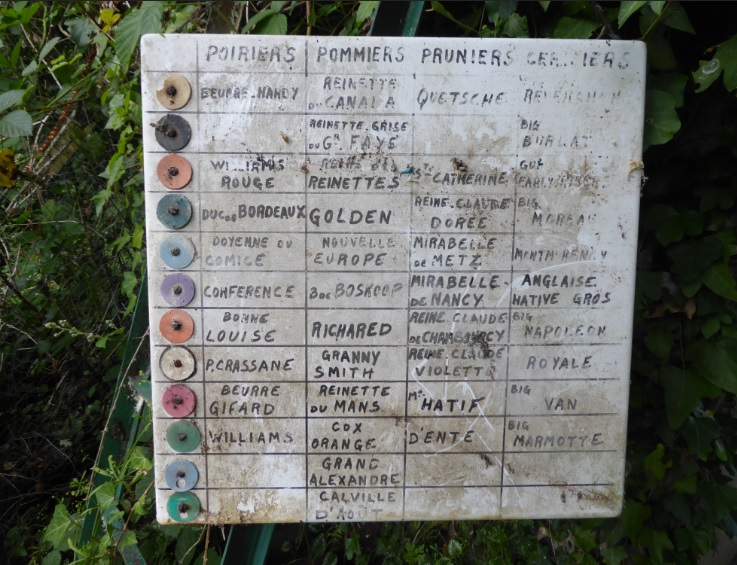 POIRIERS POMMIERS PRUNIERS
BEURRE.HARDY REINETTE DU CANADA QUETSCHE
REINETTE.GRISE DU GR FAYE BIG BURLAT
WILLIAMS ROUGE REINE DES REINETTES STE CATHERINE
DUC DE BORDEAUX GOLDEN REINE.CLAUDE DOREE BIG MOREAU
DOYENNE DU COMICE NOUVELLE EUROPE MIRABELLE DE METZ
CONFERENCE BOSKOOP MIRABELLE DE NANCY ANGLAISE HATIVE GROS
BONNE LOUISE RICHARED REINE.CLAUDE DE CHAMBOURCY BIG NAPOLEON
P.CRASSANE GRANNY SMITH REINE.CLAUDE VIOLETTE ROYALE
BEURRE GIFARD REINETTE DU MANS HATIF BIG VAN
WILLIAMS COX ORANGE D'ENTE BIG MARMOTTE
GRAND ALEXANDRE
CALVILLE D'AOUT